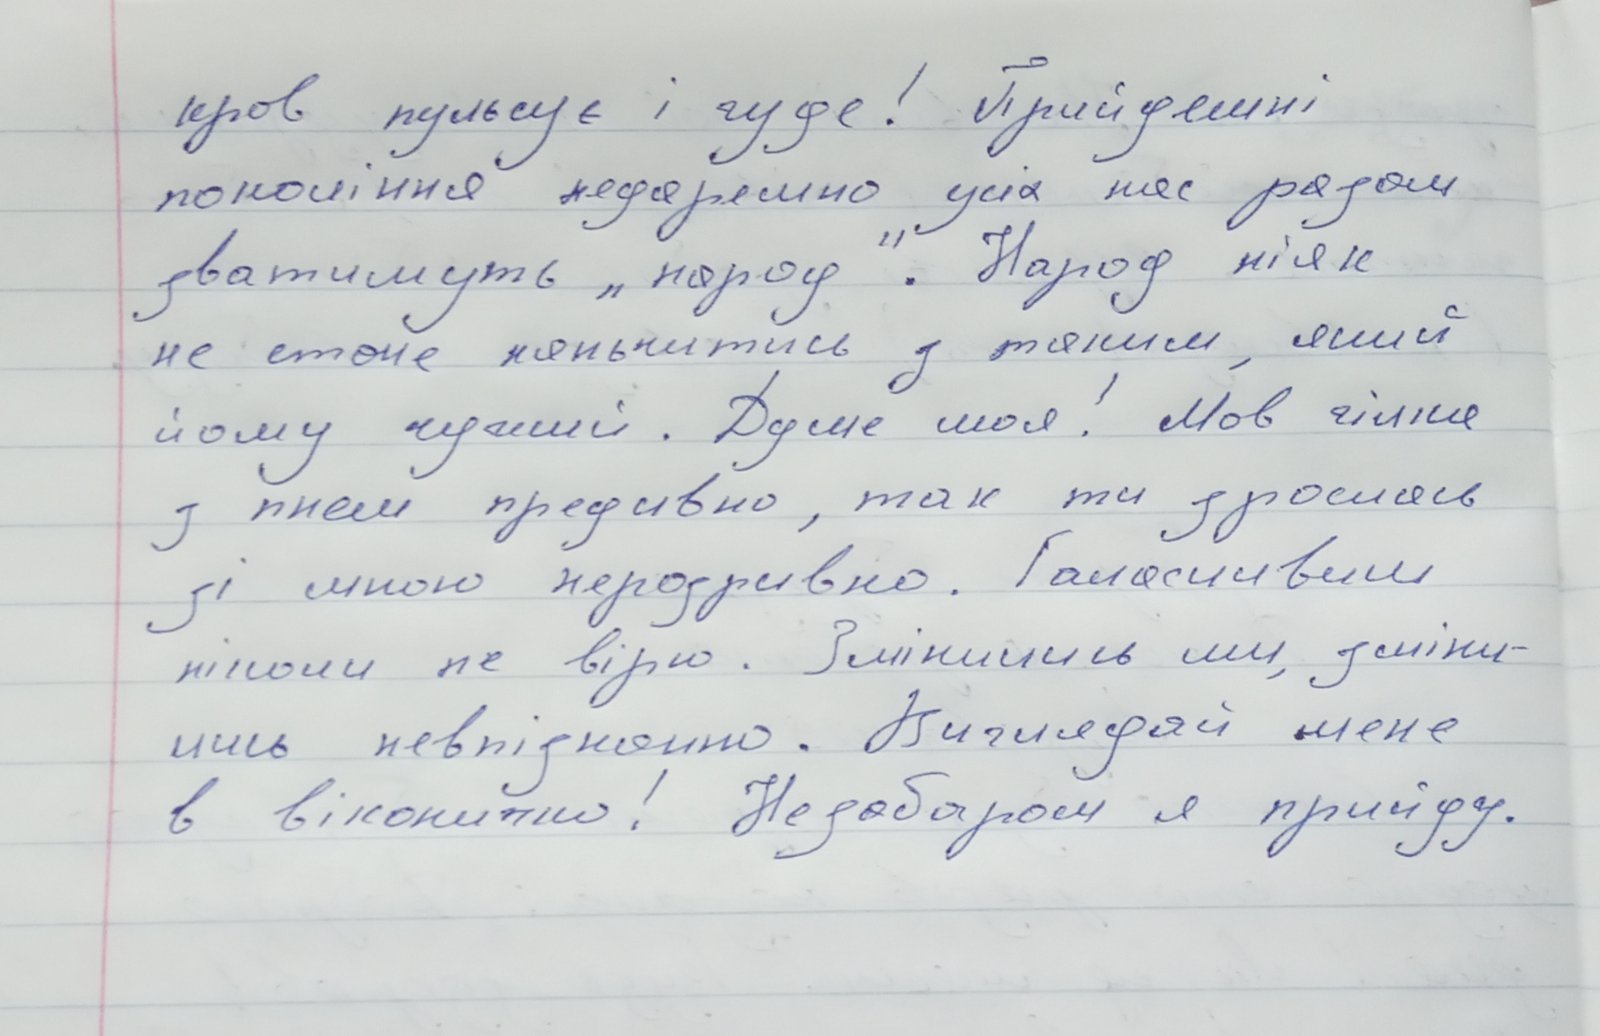 кров пульсує і гуде! Прийдешні
покоління недаремно усіх нас разом
зватимуть „народ". Народ ніяк
не стане няньчитись з таким, який
йому чужий. Думе моя! Мов гілка
з пнем предивно, так ти зрослась
зі мною нерозривно. Галасливим
ніколи не вірю. Змінились ми, зміни-
лись невпізнанно. Виглядай мене
в віконечко! Незабаром я прийду.